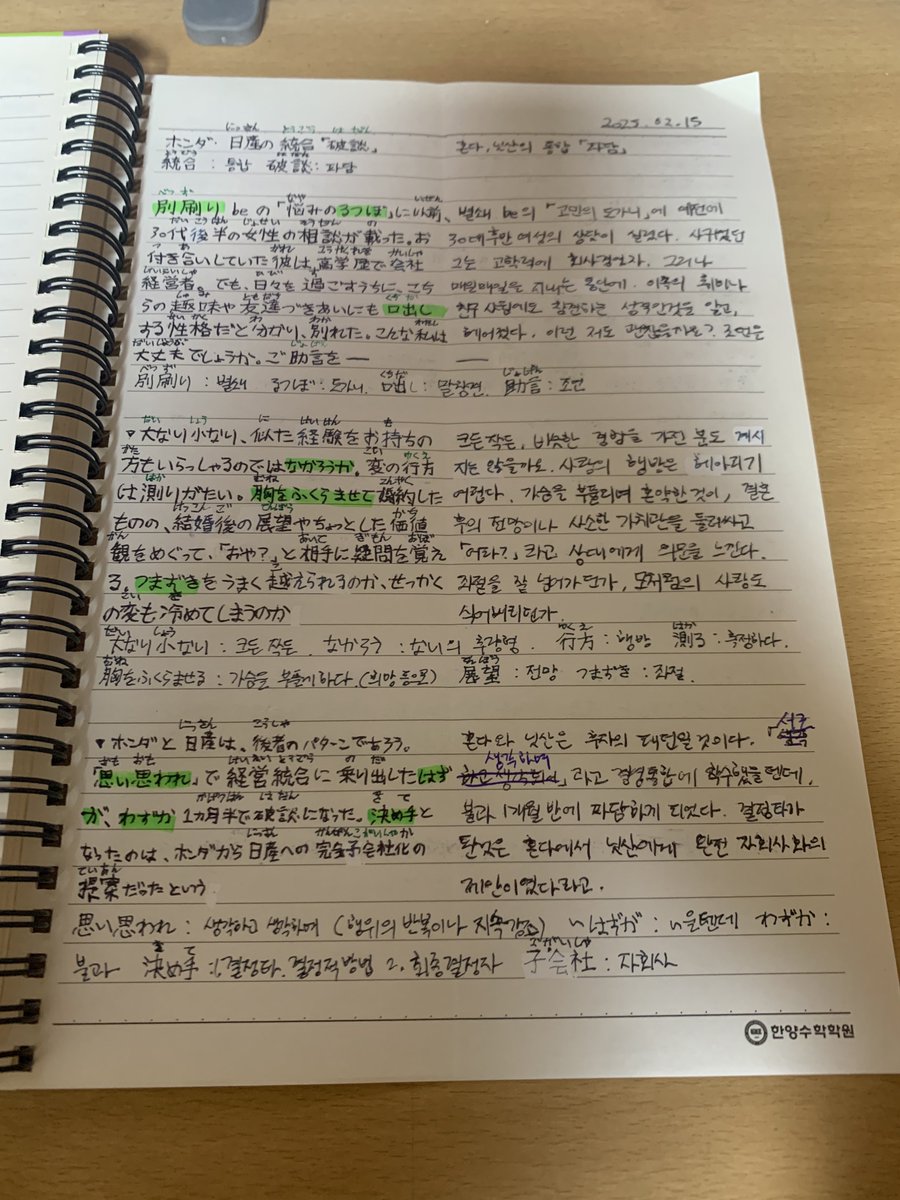 2025.02.15
ホンダ 日産の統合「破談」 혼다, 닛산의 통합 「파담」
統合 : 통합 破談 : 파담
別刷り beの「悩みのるつぼ」に以前、 별쇄 be의 「고민의 도가니」에 예전에
30代後半の女性の相談が載った。お 30대후반 여성의 상담이 실렸다. 사귀었던
付き合いしていた彼は、高学歴で会社 그는 고학력에 회사경영자. 그러나
経営者。でも、日々を過ごすうちに、こち 매일매일을 지내는 동안에. 이쪽의 취미나
らの趣味や友達づきあいにも口出し 친구 사귐에도 참견하는 성격인것을 알고,
する性格だと分かり、別れた。こんな私は 헤어졌다. 이런 저도 괜찮을까요? 조언을
大丈夫でしょうか。ご助言を― ―
別刷り : 별쇄 るつぼ : 도가니. 口出し : 말참견. 助言 : 조언
▼大なり小なり、似た経験をお持ちの 크든작든, 비슷한 경험을 가진 분도 계시
方もいらっしゃるのではなかろうか。恋の行方 지는 않을까요. 사랑의 행방은 헤아리기
は測りがたい。胸をふくらませて婚約した 어렵다. 가슴을 부풀리며 혼약한것이, 결혼
ものの、結婚後の展望やちょっとした価値 후의 전망이나 사소한 가치관을 둘러싸고
観をめぐって、「おや?」と相手に疑問を覚え 「어라?」라고 상대에게 의문을 느낀다.
る。つまずきをうまく越えられるのか、せっかく 좌절을 잘 넘기가던가, 모처럼의 사랑도
の恋も冷めてしまうのか 식어버리던가.
大なり小ない : 크든 작든. なかろう : ない의 추량형. 行方 : 행방 測る : 측정하다.
胸をふくらませる : 가슴을 부풀게하다.(희망 등으로) 展望 : 전망 つまずき : 좌절.
▼ホンダと日産は、後者のパターンであろう。 혼다와 닛산은 후자의 패턴일 것이다. 「서로
「思い思われ」で経営統合に乗り出したはず 생각하며 」라고 경영통합에 착수했을텐데,
が、わずか1カ月半で破談になった。決め手と 불과 1개월 반에 파담하게 되었다. 결정타가
なったのは、ホンダから日産への完全子会社化の 된것은 혼다에서 닛산에게 완전 자회사화의
提案だったという 제안이였다라고.
思い思われ : 생각하고 생각하며 (행위의 반복이나 지속강조) ~はずが : ~을텐데 わずか :
불과 決め手 : 1.결정타. 결정적방법 2. 최종결정자 子会社 : 자회사
한양수학학원